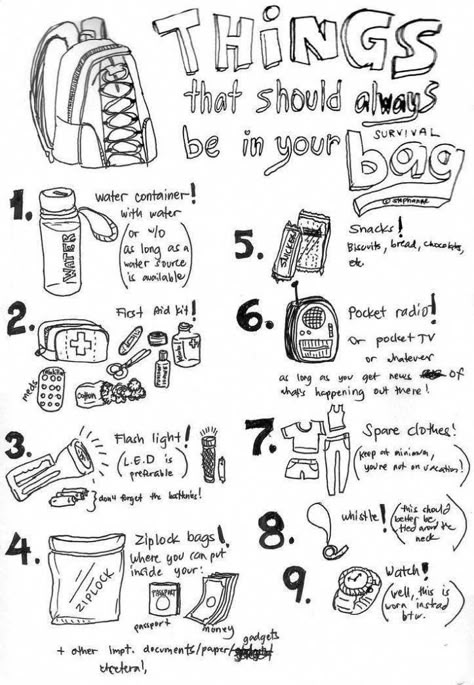 THiNGS
that should always
be in your SURVIVAL
bag
@stephanae
1.
water container!
with water
(or w/o
as long as a
water source
is available)
WATER
2.
First Aid kit!
meds
Cotton
3.
Flash light!
(L.E.D is
preferable)
don't forget the batteries!
4.
Ziplock bags!
where you can put
inside your:
ZIPLOCK
PASSPORT
passport
money
+ other impt. documents/paper/gadgets
etcetera!,
5.
Snacks!
Biscuits, bread, chocolates,
etc
SNICKER
6.
Pocket radio!
Or pocket TV
or whatever
as long as you get news of
what's happening out there!
7.
Spare clothes!
(keep at minimum,
you're not on vacation!)
8.
whistle!
(this should
better be
tied around the
neck)
9.
Watch!
(well, this is
worn instead
btw.)